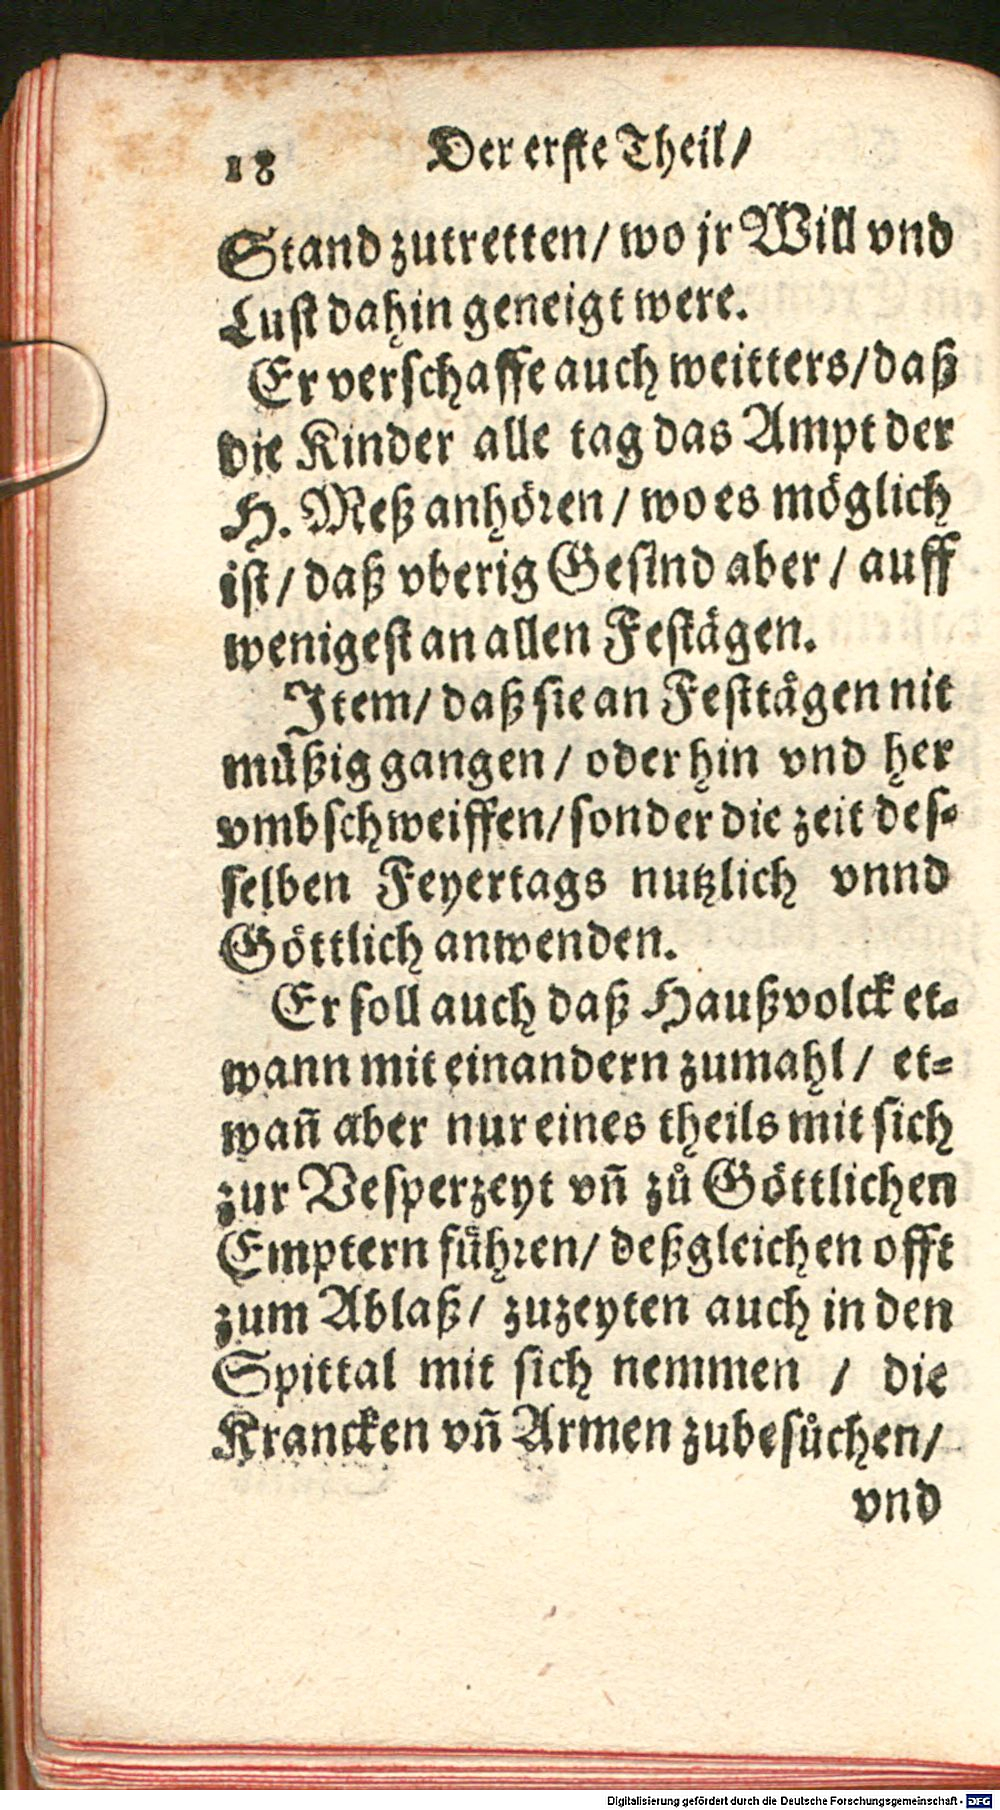 18 Der erste Theil/
Stand zutretten/ wo jr Will vnd
Lust dahin geneigt were.
Er verschaffe auch weitters/ daß
die Kinder alle tag das Ampt der
H. Meß anhören/ wo es möglich
ist/ daß vberig Gesind aber/ auff
wenigest an allen Festägen.
Item/ daß sie an Festtägen nit
müßig gangen/ oder hin vnd her
vmbschweiffen/ sonder die zeit des-
selben Feyertags nutzlich vnnd
Göttlich anwenden.
Er soll auch daß Haußvolck et-
wann mit einandern zumahl/ et-
wañ aber nur eines theils mit sich
zur Vesperzeyt vñ zů Göttlichen
Emptern führen/ deßgleichen offt
zum Ablaß/ zuzeyten auch in den
Spittal mit sich nemmen / die
Krancken vñ Armen zubesůchen/
vnd
Digitalisierung gefördert durch die Deutsche Forschungsgemeinschaft - DFG